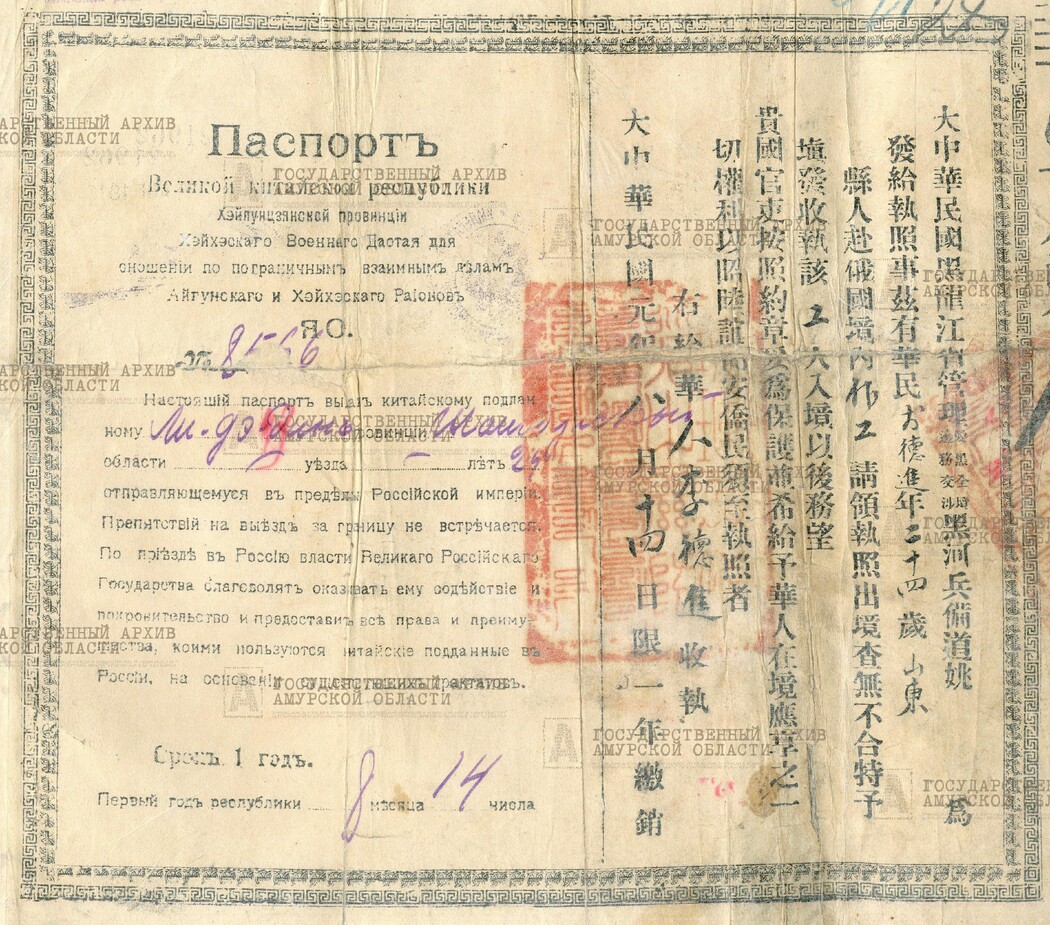 Паспортъ
Великой китайской республики
Хэйлунцзянской провинціи
Хэйхэскаго Военнаго Даотая для
сношеній по пограничнымъ взаимнымъ дѣламъ
Айгунскаго и Хэйхэскаго Раіоновъ
ЯО.
№ 8536
Настоящій паспортъ выданъ китайскому поддан
ному Ли-дэ-
области уѣзда лѣтъ 24
отправляющемуся въ предѣлы Россійской имперіи
Препятствій на выѣздъ за границу не встрѣчается.
По пріѣздѣ въ Россію власти Великаго Россійскаго
Государства благоволятъ оказывать ему содѣйствіе и
покровительство и предоставить всѣ права и преиму-
щества, коими пользуются китайскіе подданные въ
Россіи, на основаніи существующихъ трактатовъ.
Срокъ 1 годъ.
Первый годъ республики 8 мѣсяца 14 числа
大中華民國黑龍江省管理 黑河兵備道姚 爲
發給執照事茲有華民李德進年二十四歲山東
縣人赴俄國境內作工請領執照出境查無不合特予
塡發收執該工人入境以後務望
貴國官吏按照約章妥爲保護並希給予華人在境應享之一
切權利以昭睦誼而安僑民須至執照者
右給華人李德進收執
大中華民國元年八月十四日限一年繳銷
ГОСУДАРСТВЕННЫЙ АРХИВ
АМУРСКОЙ ОБЛАСТИ